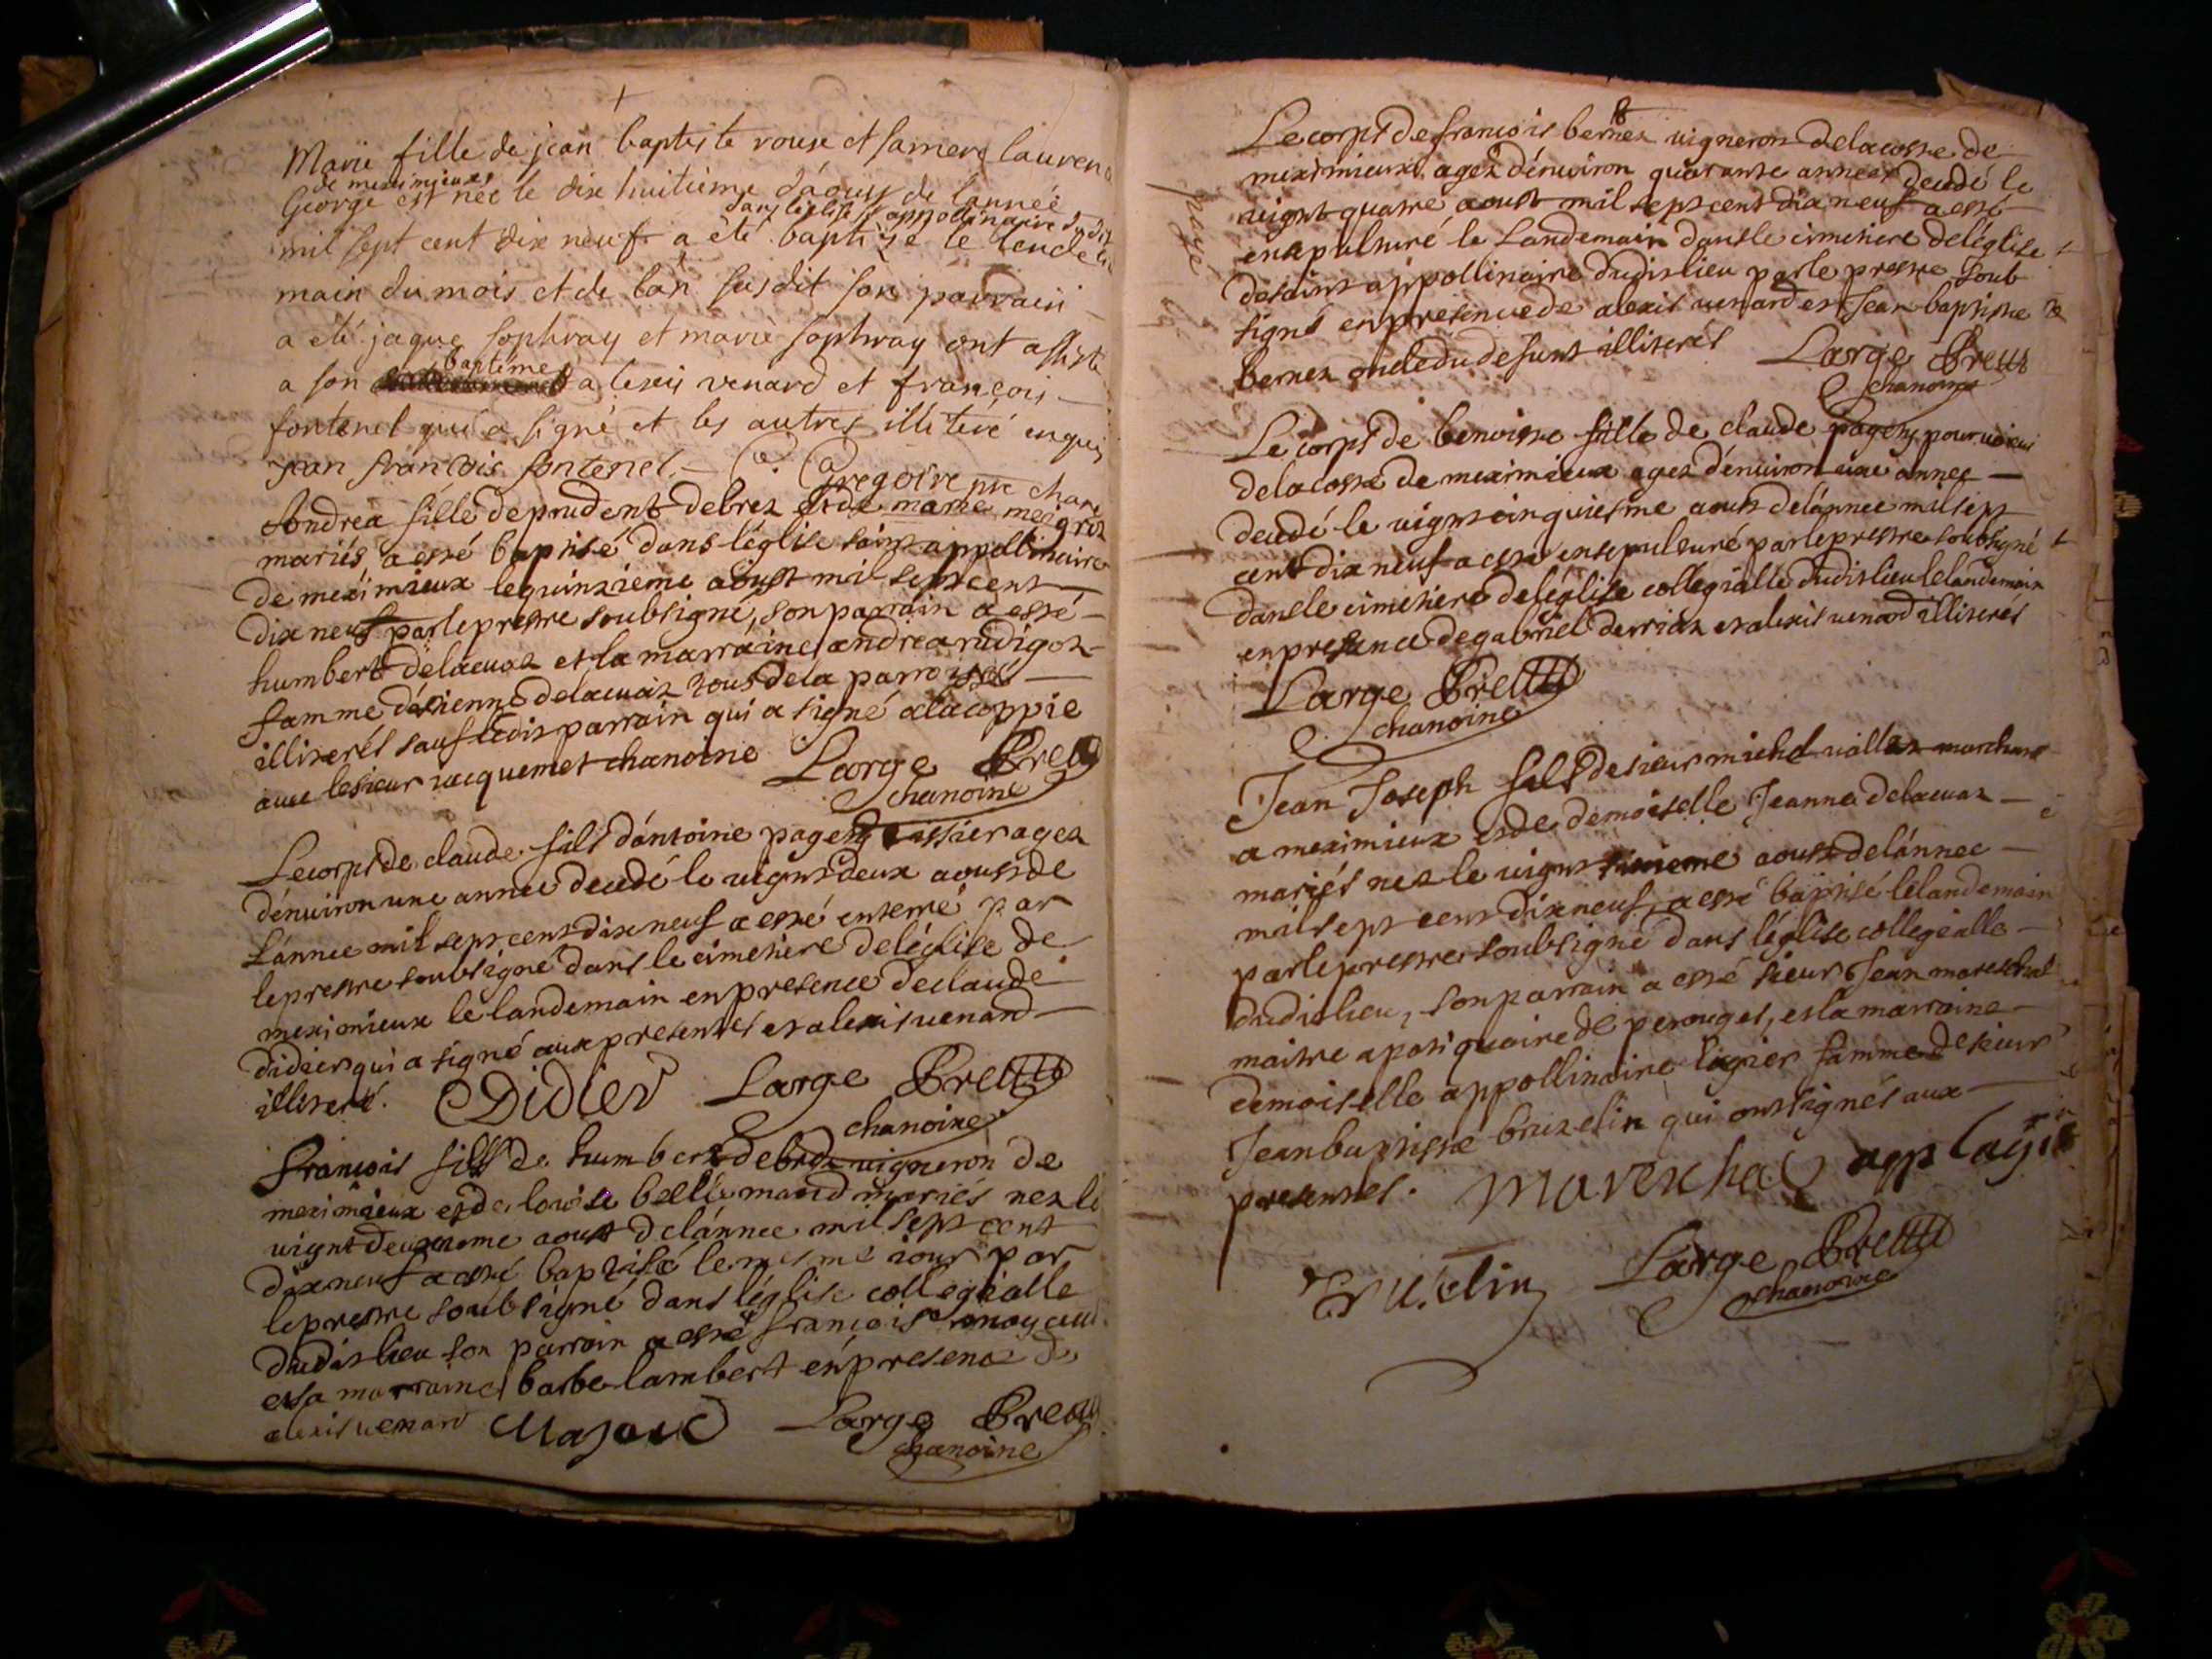 Marie fille de jean baptiste roux et sa mere lauren
de meximieux
George est née le dix huitième d'aoust de lannée
dans léglise st appollinaire dudit
mil sept cent dix neuf a été baptizé le lende
main du mois et de lan susdit son parrain
a été jaque sophray et marie sophray ont assisté
baptéme
a son alexis venard et françois
fontenel qui a signé et les autres illiteré enquis
jean francois fontenel. Gregoire pre chane
Andrea fille de prudent debrez et de marie meigroz
mariés, a esté baptisé dans léglise saint appollinaire
de meximieux le quinzieme aoust mil sept cent
dix neuf par le prestre soubsigné, son parrain a esté
humbert delacuaz et la marraine andrea rudigoz
famme déstienne delacuaz tous de la parroisse
illiterés sauf ledit parrain qui a signé a la coppie
avec le sieur jacquemet chanoine Large Bret
chanoine
Le corps de claude fils dántoine pageny agez
dénuiron une année decedé le uigntdeux aoust de
Lánnee mil sept cent dix neuf a esté enterré par
le prestre soubsigné dans le cimetiere de léglise de
meximieux le landemain en presence de claude
didier qui a signé aux presentes et alexis uenard
illiteré. Didier Large Brettt
chanoine
françois fils de humbert debrez uigneron de
meximieux et de louise bellemand mariés nez le
uigntdeuxieme aoust de lánnee mil sept cent
dix neuf a esté baptisé le mesme iour par
le prestre soubsigné dans léglise collegialle
dudit lieu son parrain a esté françois moyaud
et la marraine barbe lambert en presence d
alexis uenard Majaud Large Brett
chanoine
8
Le corps de françois bernez uigneron de la coste de
meximieux, agez dénuiron quarante années decedé le
uignt quatre aoust mil sept cent dix neuf a esté
paye
ensepulturé le Landemain dans le cimetiere de léglise
de saint appollinaire dudit lieu par le prestre soub
signé en presence de alexis uenard et Jean baptiste
bernez oncle du defunt illiterés Large Brettt
chanoine
Le corps de benoiste fille de claude pageny
de la coste de meximieux agez dénuiron une année
decedé le uignt cinquiesme aoust de lánnee mil sept
cent dix neuf a esté ensepulturé par le prestre soubsigné
dans le cimetiere de léglise collegialle dudit lieu le landemain
en presence de gabriel derriaz et alexis uenard illiterés
Large Brettt
chanoine
Jean Joseph fils de sieur michel uallet marchant
a meximieux et de demoiselle Jeanne delacuaz
mariés nez le uignt sixieme aoust de lánnee
mil sept cent dix neuf, a esté baptisé le landemain
par le prestre soubsigné dans léglise collegialle
dudit lieu, son parrain a esté sieur Jean mareschal
maitre apotiquaire de perouges, et la marraine
demoiselle appollinaire lagier famme de sieur
Jean baptiste bruzelin qui ont signés aux
presentes. Mareschal app lagie
Bruzelin Large Brettt
chanoine